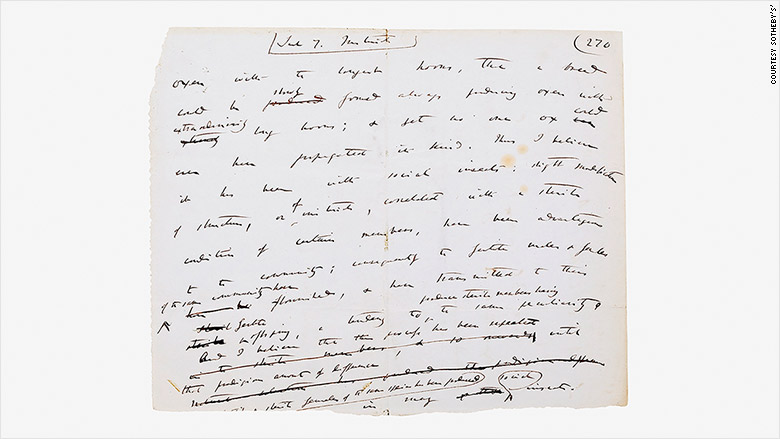 Sect 7. Instinct
(270
oxen with the longest horns, that a breed
could be slowly produced formed always producing oxen with
extraordinarily long horns; & yet no one ox could
ever have propagated its kind. Thus I believe
it has been with social insects: slight modification
of structure, or of instinct, correlated with a sterile
condition of certain members, have been advantageous
to the community; consequently the fertile males & females
of the same community have flourished, & have transmitted to their
fertile offspring, a tendency to produce sterile members having the same peculiarity
And I believe that this process has been repeated, until
that prodigious amount of difference
sterile females of the same species has been produced
in many social insects.
COURTESY SOTHEBY'S'